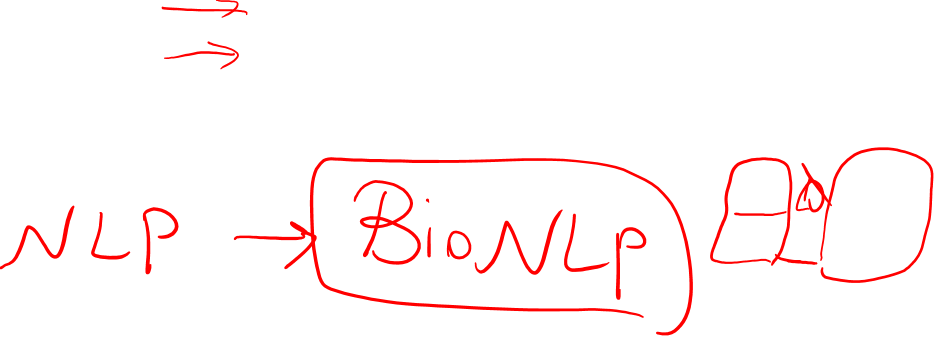 →
→
NLP → BioNLP